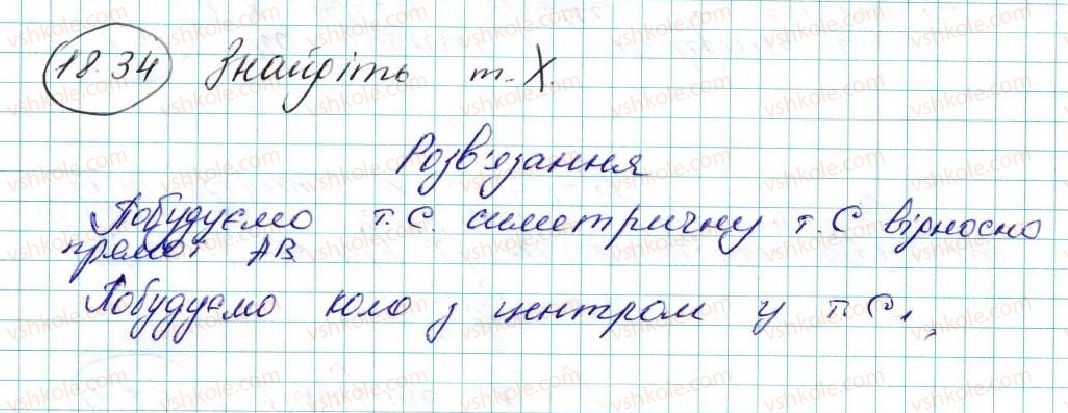 18.34 Знайдіть т. X.
Розв'язання
Побудуємо т. С. симетричну т. С відносно
прямої АВ
Побудуємо коло з центром у т. С₁,